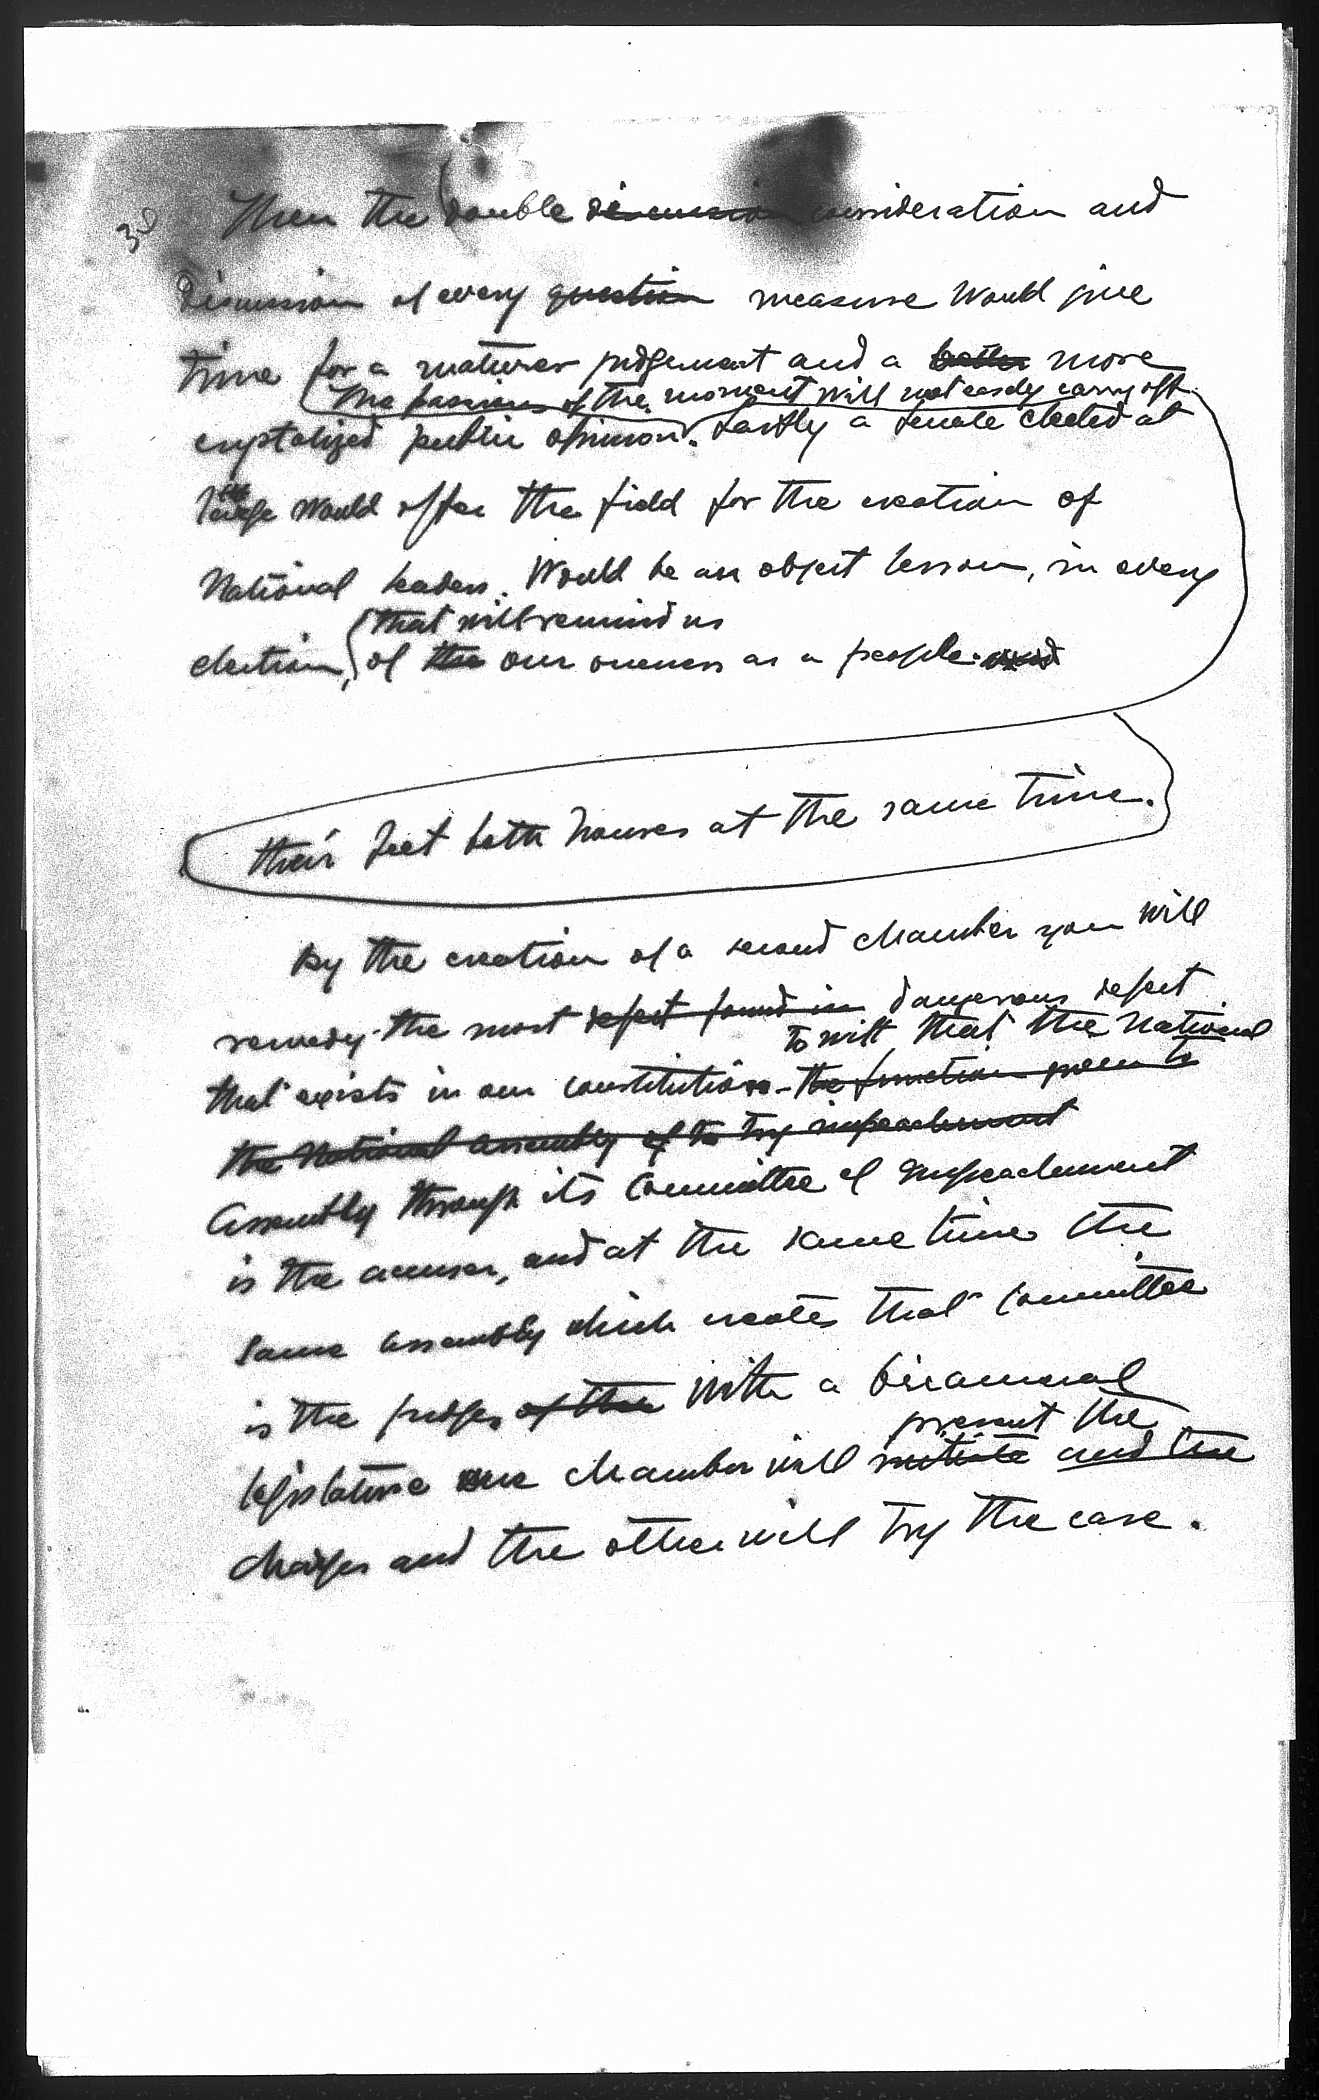 3d
Then the double discussion consideration and
discussion of every question measure would give
time for a maturer judgement and a better more
The passions of the moment will not easily carry off
cryptalized public opinion. Lastly a senate elected at
large would offer the field for the creation of
National leaders. Would be an object lesson, in every
that will remind us
election, of the our oneness as a people.
their feet both houses at the same time.
By the creation of a second chamber you will
remedy the most defect found in dangerous defect
to witt that the National
that exists in our constitution - the function given to
the National Assembly of to try impeachment
Assembly through its Committee of Impeachment
is the accuser, and at the same time the
same assembly which creates that Committee
is the judge, of the With a bicameral
present the
legislature one chamber will initiate and the
charges and the other will try the case.